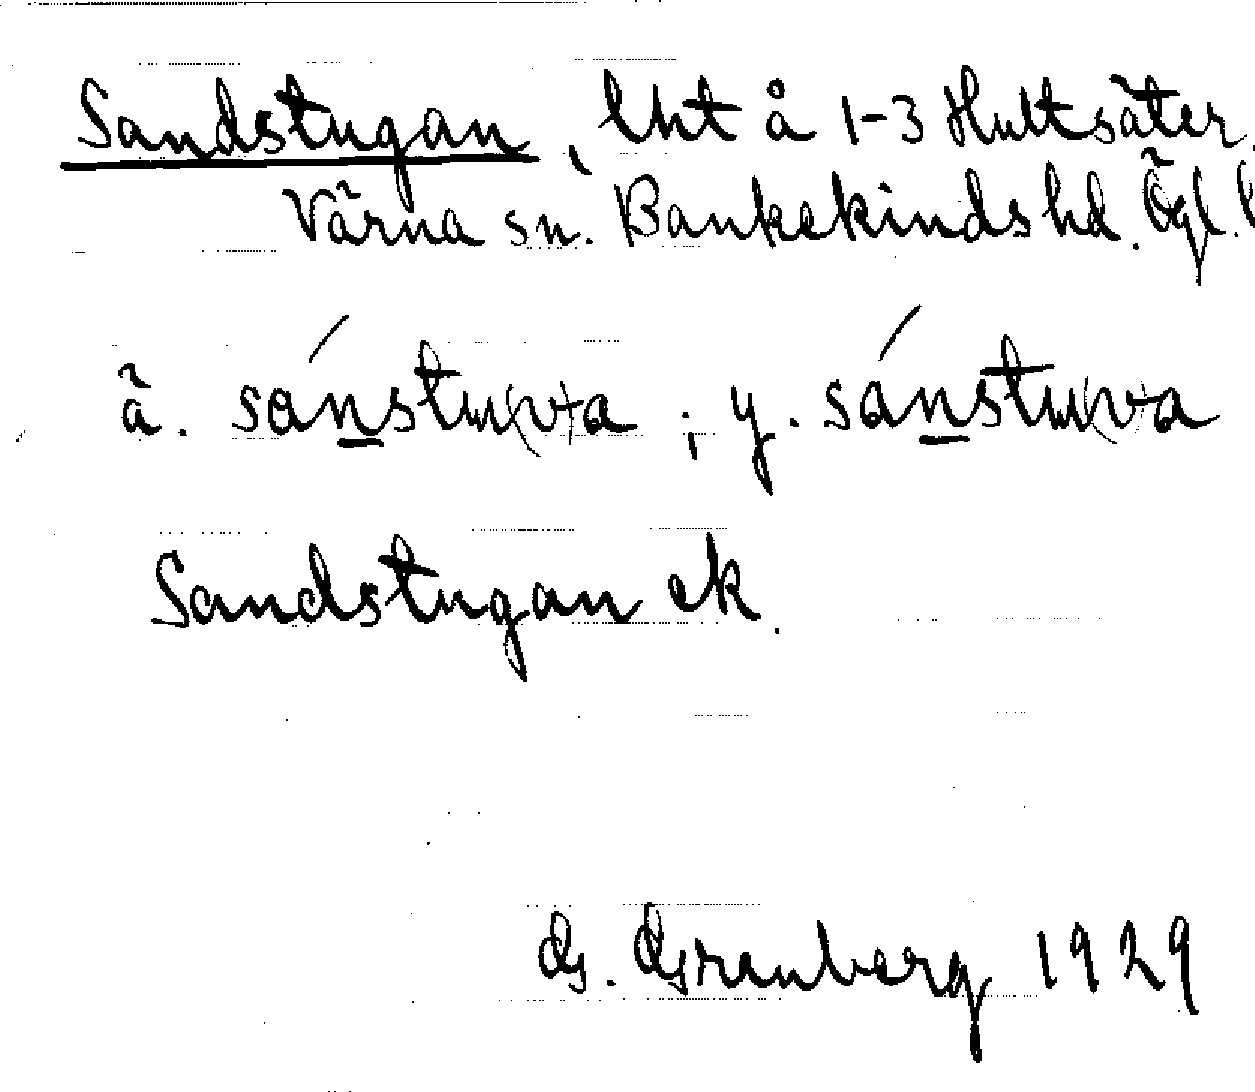 Sandstugan, lht å 1-3 Hultsäter,
Värna sn. Bankekinds hd. Ögl. l
ä. sánstu(v)a ; y. sánstu(v)a
Sandstugan ek.
G. Granberg 1929